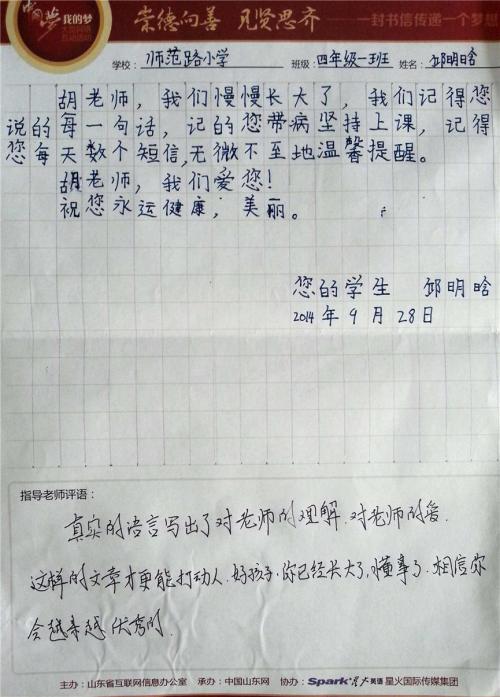 中国梦 我的梦
大型网络
互动活动
崇德向善 见贤思齐
一封书信传递一个梦想
学校：师范路小学 班级：四年级一班 姓名：邱明晗
胡老师，我们慢慢长大了，我们记得您
说的每一句话，记的您带病坚持上课，记得
您每天数个短信,无微不至地温馨提醒。
胡老师，我们爱您！
祝您永远健康，美丽。
您的学生 邱明晗
2014年9月28日
指导老师评语：
真实的语言写出了对老师的理解.对老师的爱.
这样的文章才更能打动人.好孩子,你已经长大了,懂事了.相信你
会越来越优秀的.
主办：山东省互联网信息办公室 承办：中国山东网 协办：Spark星火英语 星火国际传媒集团